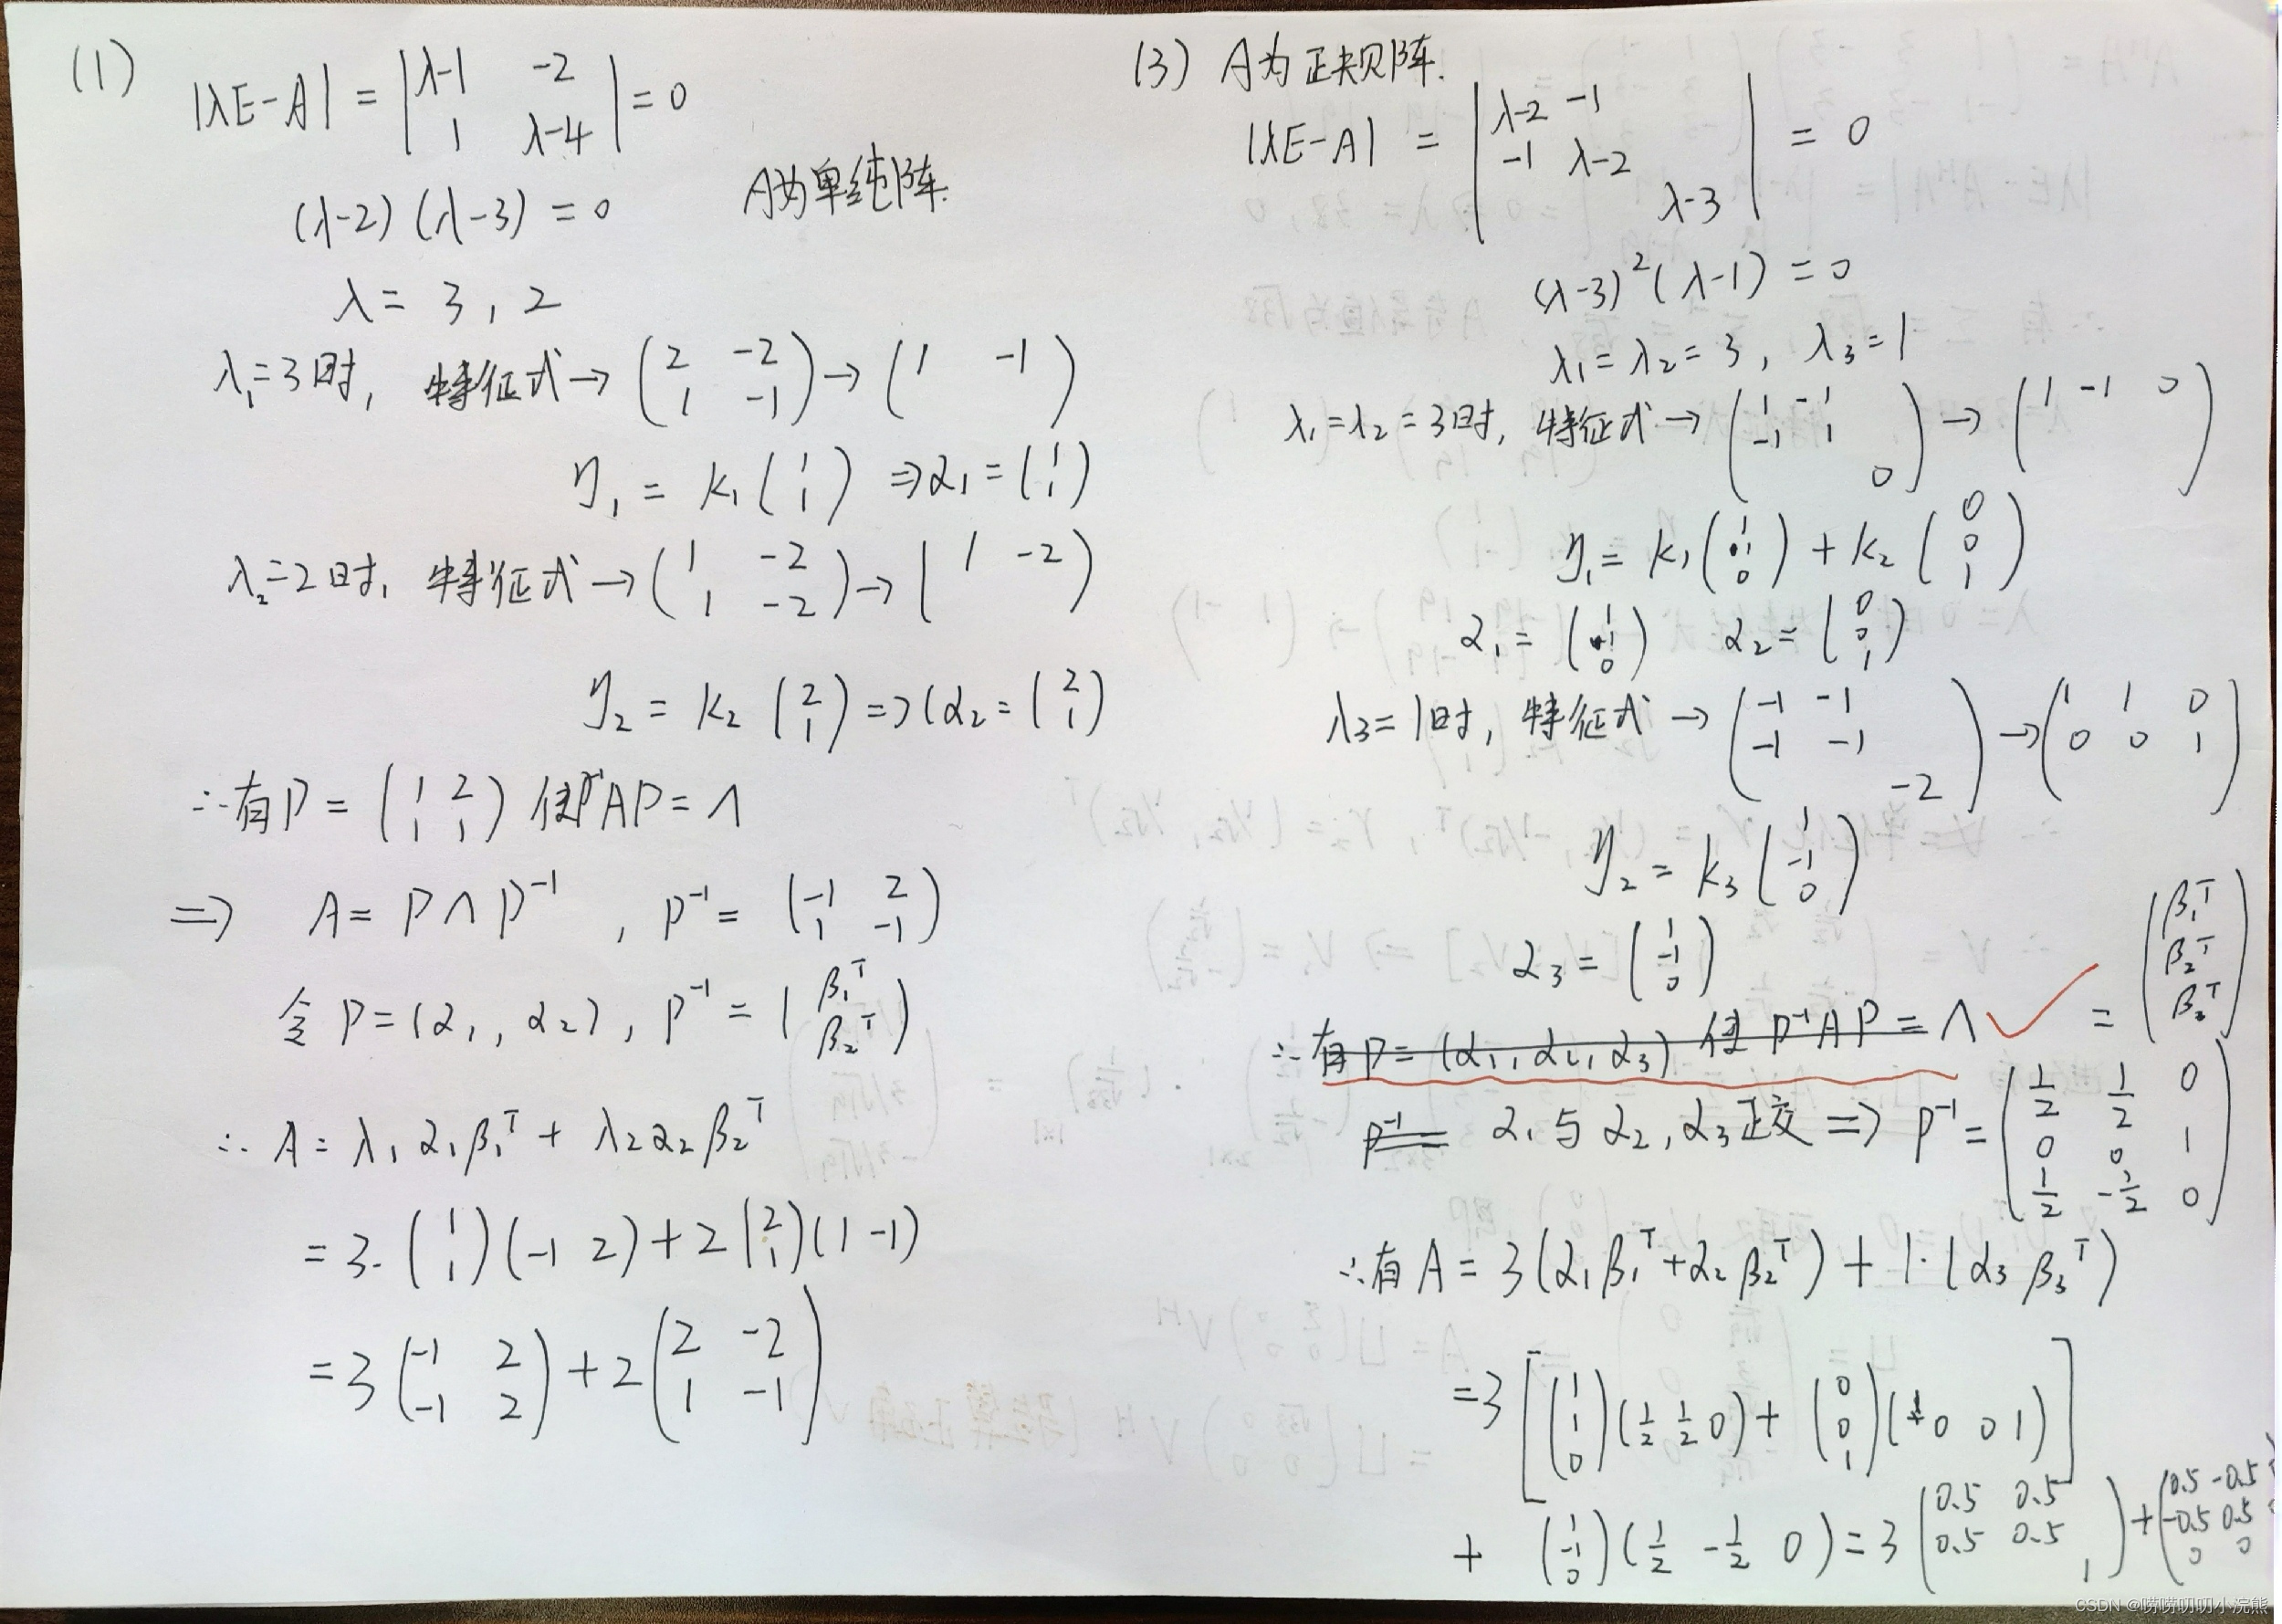 (1)
|λE-A| = |λ-1 -2; 1 λ-4| = 0
(λ-2)(λ-3) = 0 A为单纯阵.
λ = 3, 2
λ₁=3时, 特征式 → (2 -2; 1 -1) → (1 -1)
η₁ = k₁(1; 1) ⇒ α₁ = (1; 1)
λ₂=2时, 特征式 → (1 -2; 1 -2) → (1 -2)
η₂ = k₂(2; 1) ⇒ (α₂ = (2; 1)
∴有P = (1 2; 1 1) 使P⁻¹AP = Λ
⇒ A = PΛP⁻¹, P⁻¹ = (-1 2; 1 -1)
令 P = (α₁, α₂), P⁻¹ = (β₁ᵀ; β₂ᵀ)
∴ A = λ₁α₁β₁ᵀ + λ₂α₂β₂ᵀ
= 3·(1; 1)(-1 2) + 2(2; 1)(1 -1)
= 3(-1 2; -1 2) + 2(2 -2; 1 -1)
(3) A为正规阵.
|λE-A| = |λ-2 -1; -1 λ-2; λ-3| = 0
(λ-3)²(λ-1) = 0
λ₁=λ₂=3, λ₃=1
λ₁=λ₂=3时, 特征式 → (1 -1; -1 1; 0) → (1 -1 0)
η₁ = k₁(1; 1; 0) + k₂(0; 0; 1)
α₁ = (1; 1; 0) α₂ = (0; 0; 1)
λ₃=1时, 特征式 → (-1 -1; -1 -1; -2) → (1 1 0; 0 0 1)
η₂ = k₃(1; -1; 0)
α₃ = (1; -1; 0)
∴有P = (α₁, α₂, α₃) 使 P⁻¹AP = Λ ✓ = (β₁ᵀ; β₂ᵀ; β₃ᵀ)
P⁻¹= α₁与α₂,α₃正交 ⇒ P⁻¹ = (1/2 1/2 0; 0 0 1; 1/2 -1/2 0)
∴有 A = 3(α₁β₁ᵀ+α₂β₂ᵀ) + 1·(α₃β₃ᵀ)
= 3[(1; 1; 0)(1/2 1/2 0) + (0; 0; 1)(0 0 1)]
+ (1; -1; 0)(1/2 -1/2 0) = 3(0.5 0.5; 0.5 0.5; 1) + (0.5 -0.5; -0.5 0.5; 0 0
CSDN @唠唠叨叨小浣熊